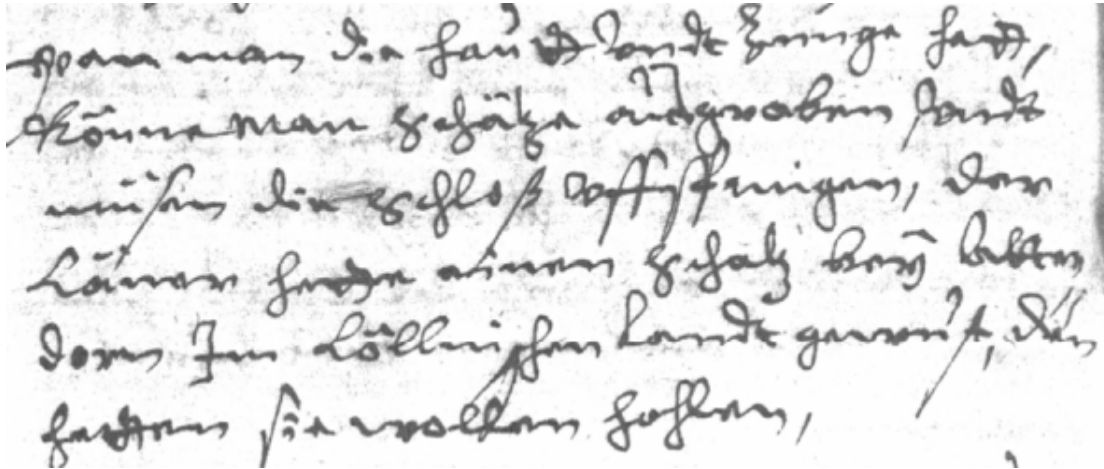 wan man die handt undt Zunge hett,
könne man Schätze außgraben undt
müsen die Schloß uffspringen, der
hette einen Schatz bey
dorn Im Cöllnischen Landt gewust, den
hetten sie wollen hohlen,